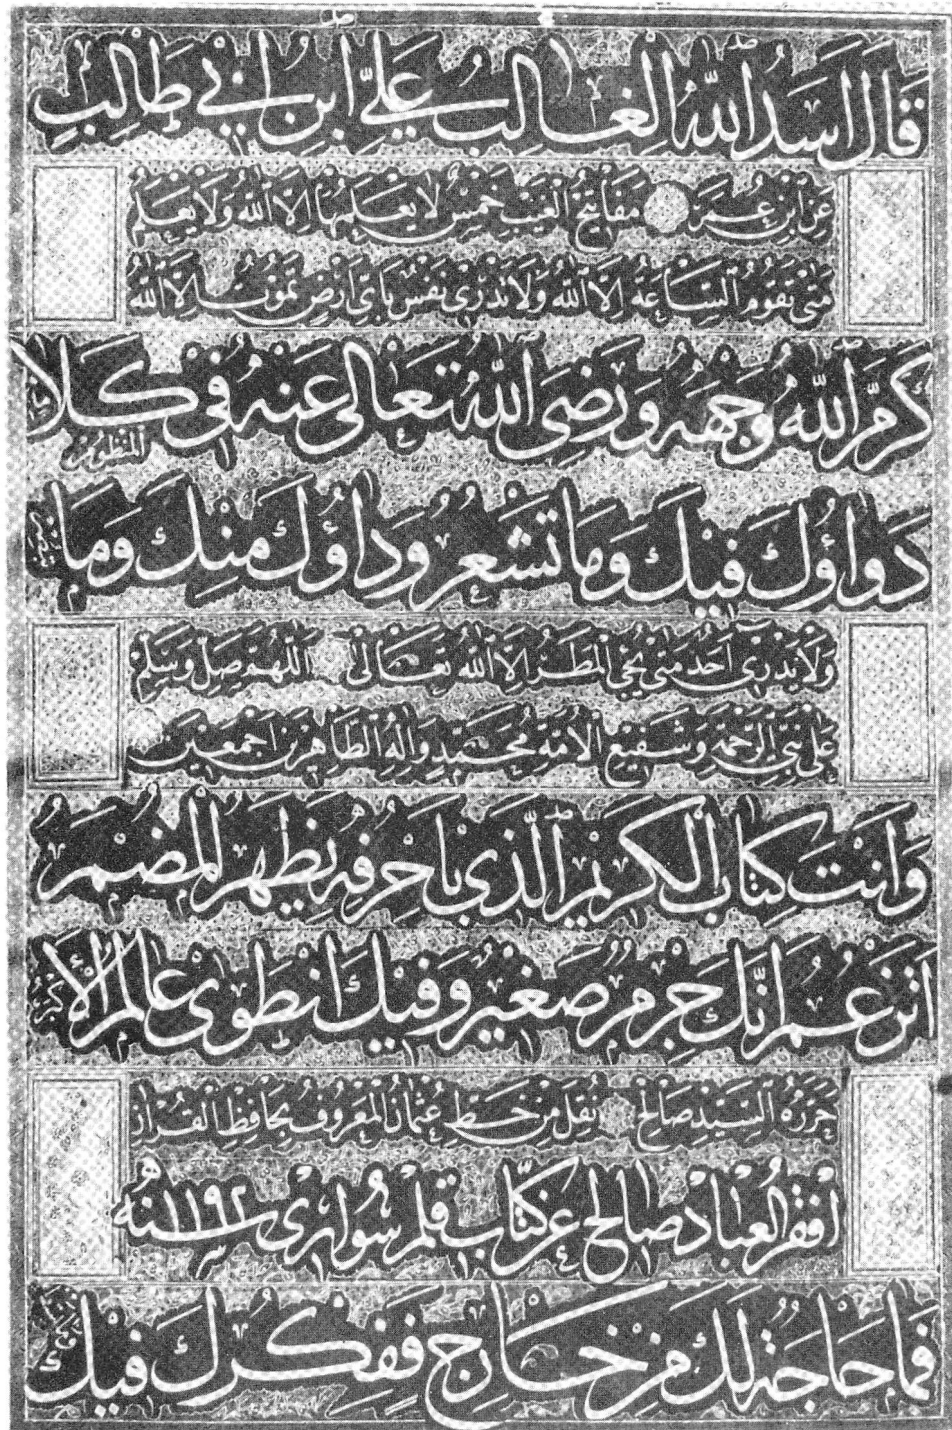 قَالَ اَسَدُ اللّٰهِ الْغَالِبُ عَلِيّ ابْنُ اَبِي طَالِبٍ
عَنِ ابْنِ عُمَرَ مَفَاتِيحُ الْغَيْبِ خَمْسٌ لَا يَعْلَمُهَا اِلَّا اللّٰهُ وَلَا يَعْلَمُ
مَتٰى تَقُومُ السَّاعَةُ اِلَّا اللّٰهُ وَلَا تَدْرِي نَفْسٌ بِاَيِّ اَرْضٍ تَمُوتُ اِلَّا اللّٰهُ
كَرَّمَ اللّٰهُ وَجْهَهُ وَرَضِيَ اللّٰهُ تَعَالٰى عَنْهُ فِي كَلَامِ الْمَنْظُومِ
دَوَاؤُكَ فِيْكَ وَمَا تَشْعُرُ وَدَاؤُكَ مِنْكَ وَمَا
وَلَا يَدْرِي اَحَدٌ مَتٰى يَجِيْ الْمَطَرُ اِلَّا اللّٰهُ تَعَالٰى اَللّٰهُمَّ صَلِّ وَسَلِّمْ
عَلٰى نَبِيِّ الرَّحْمَةِ وَشَفِيعِ الْاُمَّةِ مُحَمَّدٍ وَاٰلِهِ الطَّاهِرِينَ اَجْمَعِينَ
وَاَنْتَ كِتَابُ الْكَرِيْمِ الَّذِي بِاَحْرُفِهِ يَظْهَرُ الْمُضْمَرُ
اَتَزْعُمُ اَنَّكَ جِرْمٌ صَغِيْرٌ وَفِيْكَ انْطَوٰى عَالَمُ الْاَكْبَرُ
حَرَّرَهُ السَّيِّد صَالِح نُقِلَ مِنْ خَطِّ عُثْمَانَ الْمَعْرُوفُ بِحَافِظِ الْقُرْاٰنِ
اَفْقَرُ الْعِبَادِ صَالِح عَنْ كُتَّابِ قَلَمِ سُوَارِى سَنَة ١١٩٢
فَمَا حَاجَةٌ لَكَ مِنْ خَارِجٍ فَفِكْرُكَ فِيْكَ